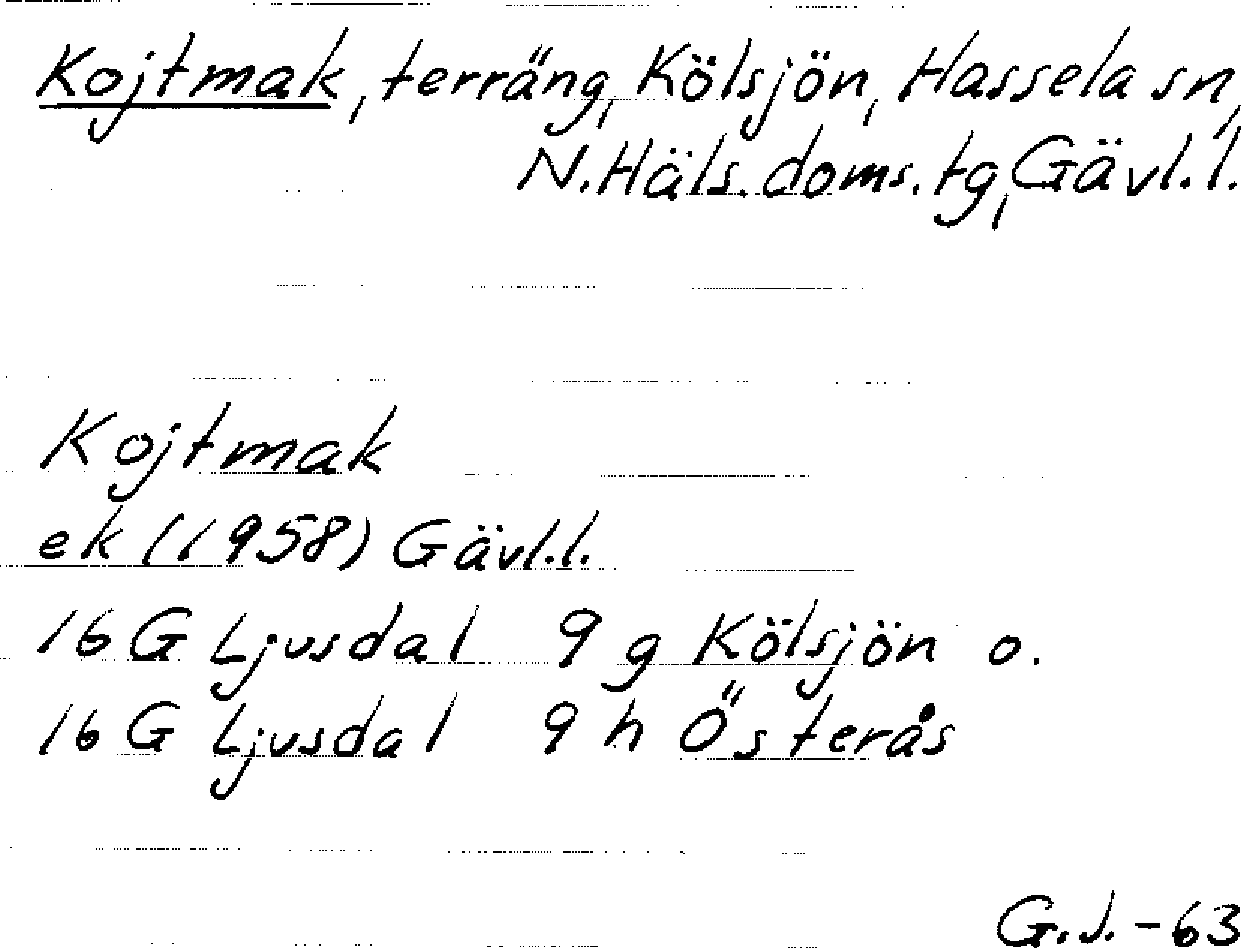 Kojtmak, terräng, Kölsjön, Hassela sn,
N. Häls. doms. tg, Gävl. l.
Kojtmak
ek (1958) Gävl. l.
16 G Ljusdal 9 g Kölsjön o.
16 G Ljusdal 9 h Österås
G.J. - 63